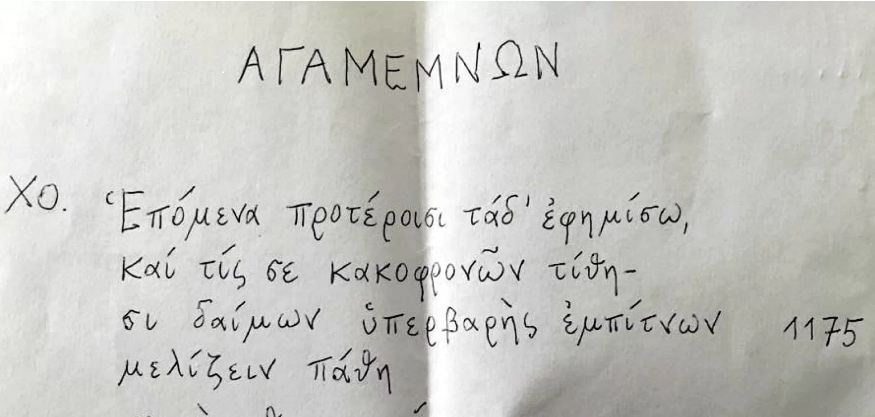 ΑΓΑΜΕΜΝΩΝ
ΧΟ. Ἑπόμενα προτέροισι τάδ' ἐφημίσω,
καί τίς σε κακοφρονῶν τίθη-
σι δαίμων ὑπερβαρὴς ἐμπίτνων 1175
μελίζειν πάθη